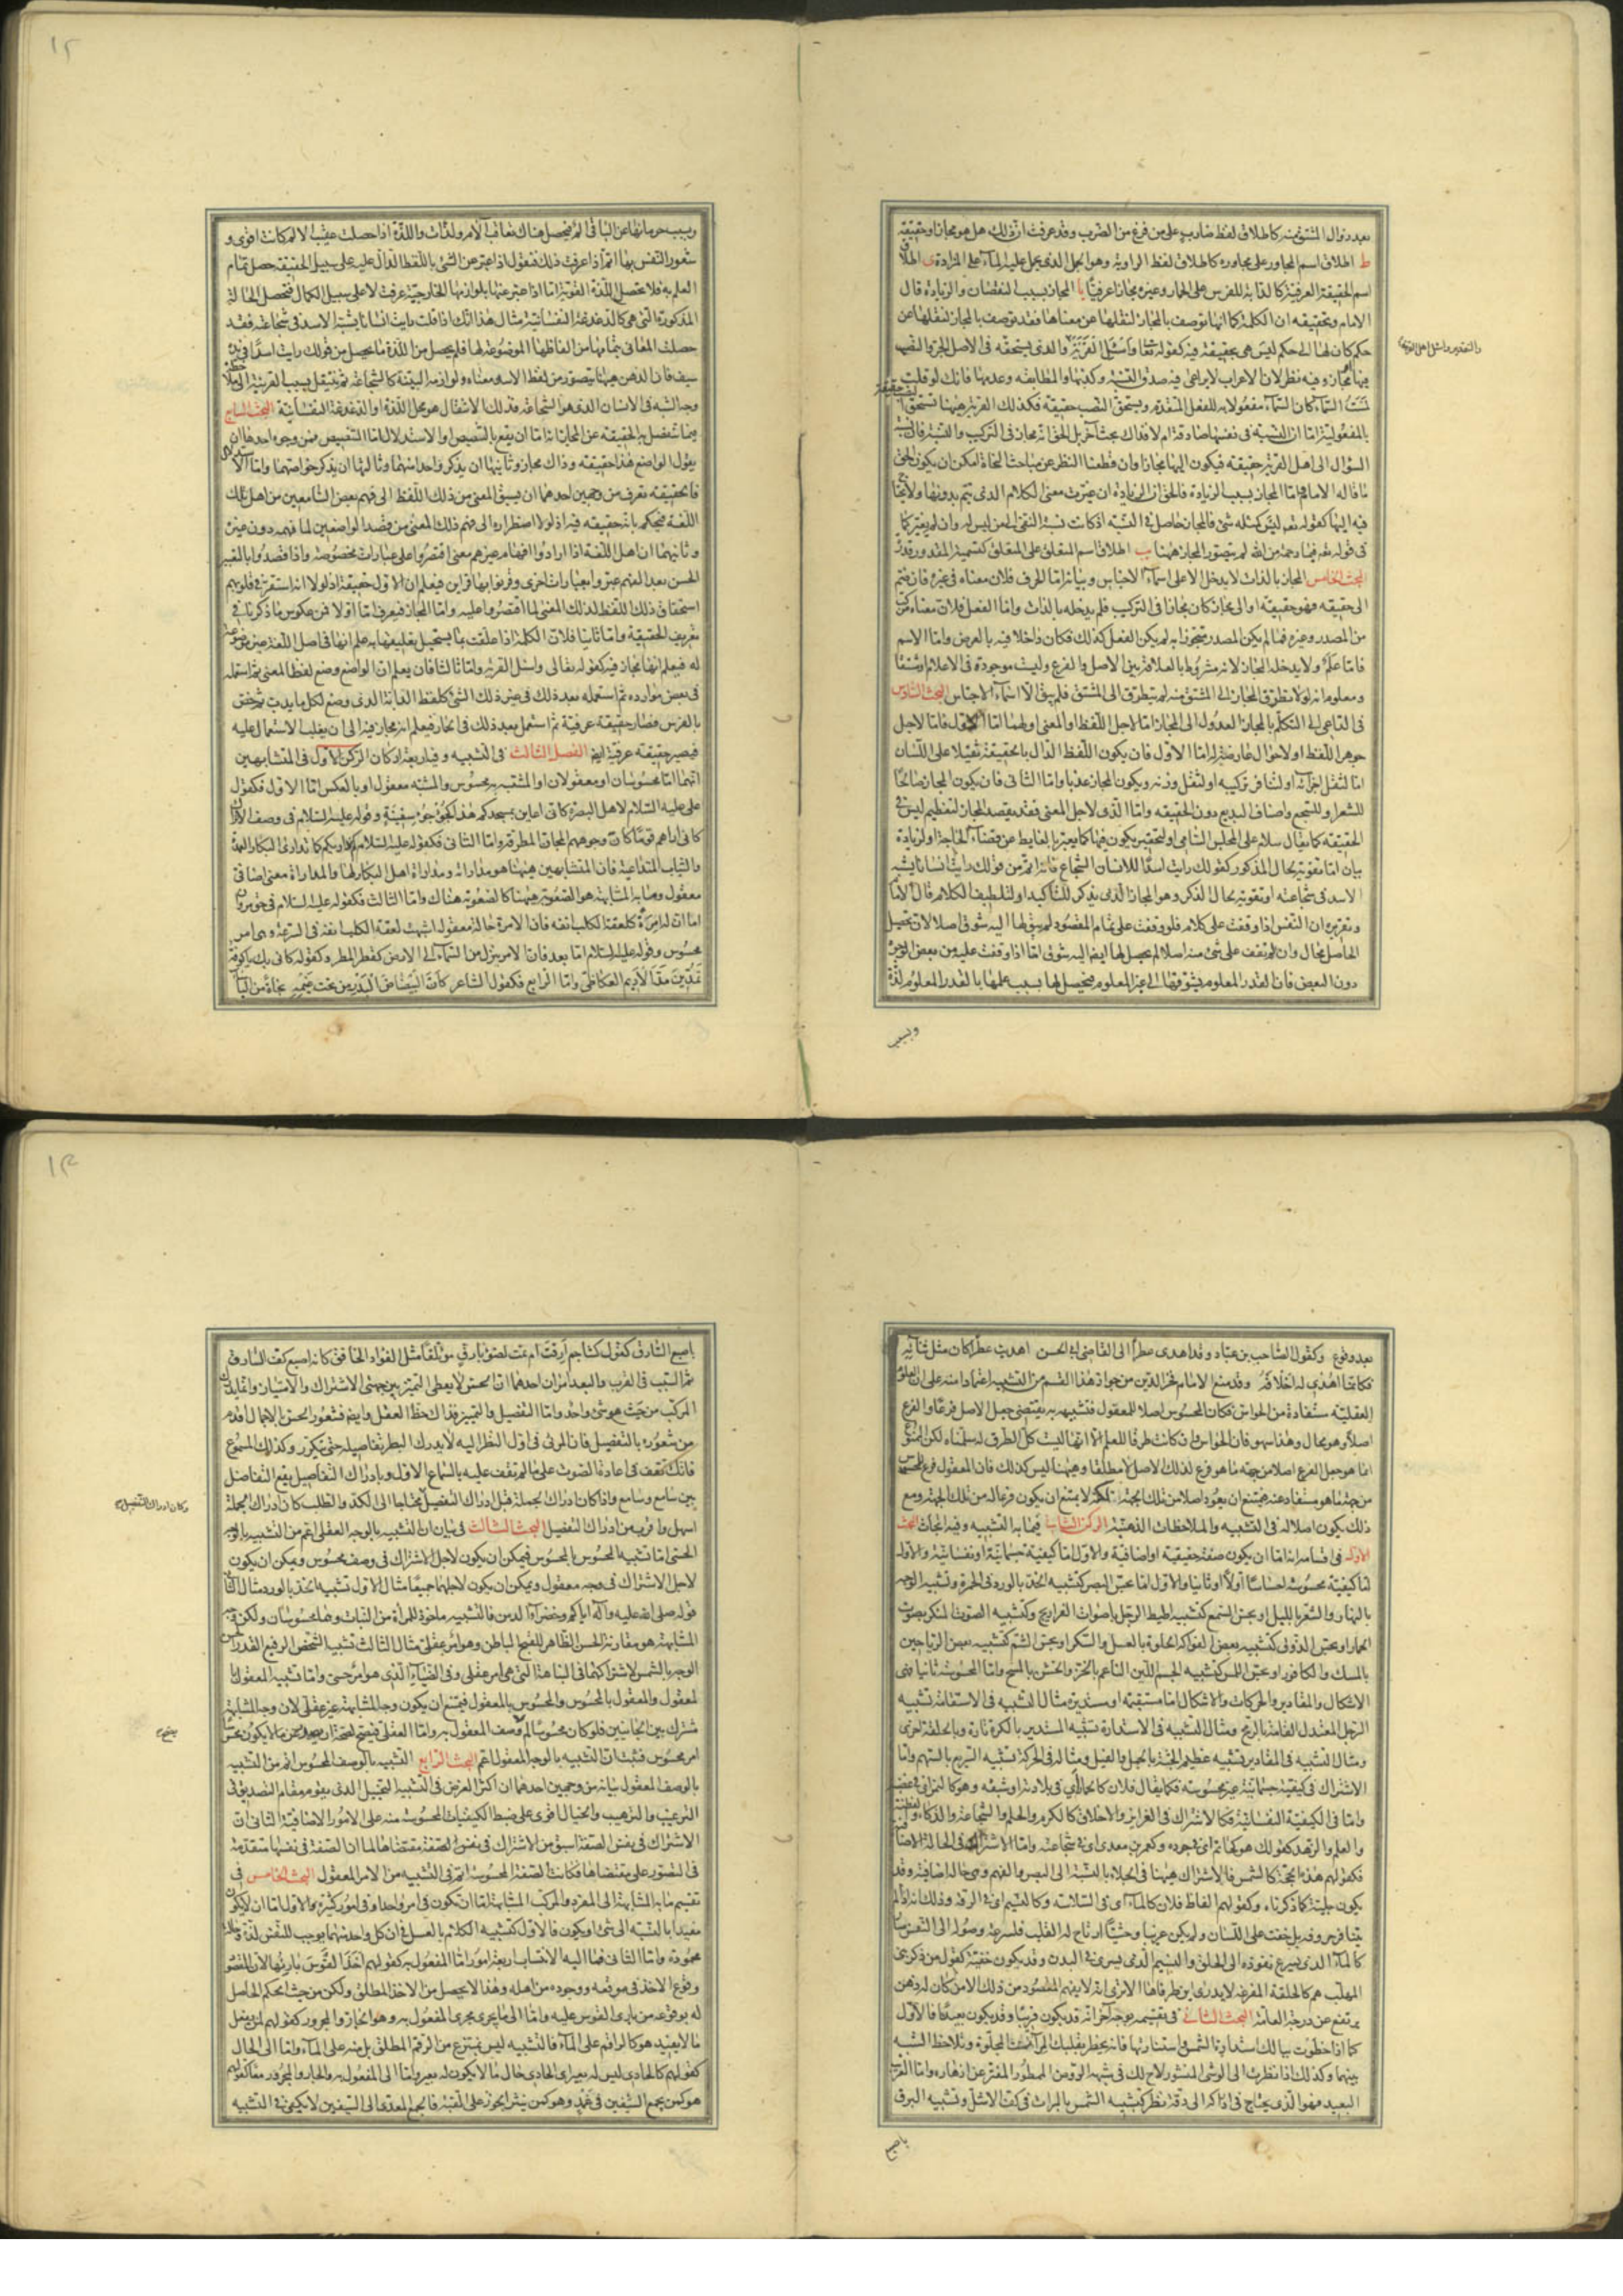 بعد زوال المشتق منه كاطلاق لفظ ضارب على من فرغ من الضرب وقد عرفت ان ذلك هل هو مجاز او حقيقة
ط اطلاق اسم المجاور على مجاوره كاطلاق لفظ الراوية وهو الجمل الذى يحمل عليه الماء على المزادة ى اطلاق
اسم الحقيقة العرفية كالدابة للفرس على الحمار وغيره مجازا عرفيا يا المجاز بسبب النقصان والزيادة قال
الامام وتحقيقه ان الكلمة كما انها توصف بالمجاز لنقلها عن معناها فقد توصف بالمجاز لنقلها عن
حكم كان لها الى حكم ليس هى بحقيقة فيه كقوله تعالى واسئل القرية والذى يستحقه فى الاصل الجر والنصب
فيها مجاز وفيه نظر لان الاعراب لا يراعى فيه صدق النسبة وكذبها والمطابقة وعدمها فانك لو قلت
السماء كان السماء مفعولا به للفعل المتقدم ويستحق النصب حقيقة فكذلك القرية هيهنا تستحق
بالمفعولية اما ان النسبة فى نفسها صادقة ام لا فذاك بحث آخر بل الحق انه مجاز فى التركيب والنسبة فان نسبة
السؤال الى اهل القرية حقيقة فيكون اليها مجازا وان قطعنا النظر عن مباحث النحاة امكن ان يكون الحق
ما قاله الامام اما المجاز بسبب الزيادة فالحق ان الزيادة ان غيرت معنى الكلام الذى يتم بدونها
فيه ايها كقوله تعالى ليس كمثله شئ فالمجاز حاصل فى النسبة اذ كانت نسبة النفى الى من ليس له وان لم يغير كما
فى قوله تعالى فبما رحمة من الله لم يتصور المجاز هيهنا يب اطلاق اسم المتعلق على المتعلق كتسمية المقدور قدرة
البحث الخامس المجاز بالذات لا يدخل الا على اسماء الاجناس وبيانه اما الحرف فلان معناه فى غيره فان ضم
الى حقيقة فهو حقيقة او الى مجاز كان مجازا فى التركيب فلم يدخله بالذات واما الفعل فلان معناه مركب
من المصدر وغيره فما لم يكن المصدر متجوزا به لم يكن الفعل كذلك فكان داخلا فيه بالعرض واما الاسم
فاما علم ولا يدخله المجاز لانه مشروط بالعلاقة بين الاصل والفرع وليست موجودة فى الاعلام
ومعلوم انه لولا تطرق المجاز الى المشتق منه لم يتطرق الى المشتق فلم يبق الا اسماء الاجناس البحث السادس
فى الداعى الى التكلم بالمجاز العدول الى المجاز اما لاجل اللفظ او المعنى او لهما اما الاول فاما لاجل
جوهر اللفظ او لاحوال عارضة له اما الاول فان يكون اللفظ الدال بالحقيقة ثقيلا على اللسان
اما لثقل اجزائه او لتنافر تركيبه او لثقل وزنه ويكون المجاز عذبا واما الثانى فان يكون المجاز صالحا
للشعر او للسجع واصناف البديع دون الحقيقة واما الذى لاجل المعنى فقد يقصد المجاز لتعظيم ليس فى
الحقيقة كما يقال سلام على المجلس السامى او لتحقير يكون فيها كما يعبر بالغايط عن قضاء الحاجة او لزيادة
بيان اما تقوية بحال المذكور كقولك رايت اسدا للانسان الشجاع فانه اتم من قولك رايت انسانا يشبه
الاسد فى شجاعته او تقوية بحال الذكر وهو المجاز الذى يذكر للتأكيد او لتلطيف الكلام قال الامام
وتقريره ان النفس اذا وقفت على كلام فلو وقفت على تمام المقصود لم يبق لها اليه شوق اصلا لان تحصيل
الحاصل محال وان لم تقف على شئ منه اصلا لم يحصل لها ايضا اليه شوق اما اذا وقفت عليه من بعض الوجوه
دون البعض فان القدر المعلوم يشوقها الى غير المعلوم فيحصل لها بسبب علمها بالقدر المعلوم لذة
وبسبب
وبسبب حرمانها عن الباقى الم فيحصل هناك تعاقب آلام ولذات واللذة اذا حصلت عقيب الالم كانت اقوى و
شعور النفس بها اتم اذا عرفت ذلك فنقول اذا عبر عن الشئ باللفظ الدال عليه على سبيل الحقيقة حصل تمام
العلم به فلا تحصل اللذة القوية اما اذا عبر عنها بلوازمها الخارجية عرفت لا على سبيل الكمال فتحصل الحالة
المذكورة التى هى كالدغدغة النفسانية مثال هذا انك اذا قلت رايت انسانا يشبه الاسد فى شجاعته فقد
حصلت المعانى بتمامها من الفاظها الموضوعة لها فلم يحصل من اللذة ما يحصل من قولك رايت اسدا فى يده
سيف فان الذهن هيهنا يتصور من لفظ الاسد معناه ولوازمه البينة كالشجاعة ثم ينتقل بسبب القرينة الى
وجه الشبه فى الانسان الذى هو الشجاعة فذلك الانتقال هو محل اللذة او الدغدغة النفسانية البحث السابع
فيما تنفصل به الحقيقة عن المجاز انه اما ان يقع بالتنصيص او الاستدلال اما التنصيص فمن وجوه احدها ان
يقول الواضع هذا حقيقة وذاك مجاز وثانيها ان يذكر واحدا منهما وثالثها ان يذكر خواصهما واما الاستدلال
فالحقيقة تعرف من وجهين احدهما ان يسبق المعنى من ذلك اللفظ الى فهم بعض السامعين من اهل تلك
اللغة فيحكم بانه حقيقة فيه اذ لولا اضطراره الى فهم ذلك المعنى من قصد الواضعين لما فهمه دون غيره
وثانيهما ان اهل اللغة اذا ارادوا افهام غيرهم معنى اقتصروا على عبارات مخصوصة واذا قصدوا بالتعبير
الحسن بعد الفهم عبروا بعبارات اخرى وقرنوا بها قراين فيعلم ان الاول حقيقة اذ لولا انه استقر فى قلوبهم
استحقاق ذلك اللفظ لذلك المعنى لما اقتصروا عليه واما المجاز فيعرف اما اولا فمن عكوس ما ذكرنا فى
تعريف الحقيقة واما ثانيا فلان الكلمة اذا علقت بما يستحيل تعليقها به علم انها فى اصل اللغة غير موضوعة
له فيعلم انها مجاز فيه كقوله تعالى واسئل القرية واما ثالثا فان يعلم ان الواضع وضع لفظا لمعنى ثم استعمله
فى بعض موارده ثم استعمله بعد ذلك فى غير ذلك الشئ كلفظ الدابة الذى وضع لكل ما يدب ثم خص
بالفرس فصار حقيقة عرفية ثم استعمل بعد ذلك فى الحمار فيعلم انه مجاز فيه الى ان يغلب الاستعمال عليه
فيصير حقيقة عرفية ايضا الفصل الثالث فى التشبيه وفيه اربعة اركان الركن الاول فى المتشابهين
انهما اما محسوسان او معقولان او المشتبه به محسوس والمشبه معقول او بالعكس اما الاول فكقول
على عليه السلام لاهل البصرة كانى اعاين مسجدكم هذا كجؤجؤ سفينة وقوله عليه السلام فى وصف الاتراك
كانى اراهم قوما كان وجوههم المجان المطرقة واما الثانى فكقوله عليه السلام كم اداريكم كما تدارى البكار العمدة
والثياب المتداعية فان المتشابهين هيهنا هو مداراته ومداراة اهل البكار لها والمداراة معنى اضافى
معقول ومما به المشابهة هو الصعوبة هيهنا كالصعوبة هناك واما الثالث فكقوله عليه السلام فى حق مروان
اما ان له امرة كلعقة الكلب انفه فان الامرة حالة معقولة اشبهت لعقة الكلب انفه فى السرعة وهى امر
محسوس وقوله عليه السلام اما بعد فان الامر ينزل من السماء الى الارض كقطر المطر وكقوله كانى بك يا كوفة
تمدين مد الاديم العكاظى واما الرابع فكقول الشاعر كان ابيضاض البدر من تحت غيمه نجاة من البأساء
بعد وقوع وكقول الصاحب بن عباد وقد اهدى عطرا الى القاضى ابى الحسن اهديت عطرا كان مثل ثنائه
فكانما اهدى له اخلاقه وقد منع الامام فخر الدين من جواز هذا القسم من التشبيه اعتمادا منه على ان العلوم
العقلية مستفادة من الحواس فكان المحسوس اصلا للمعقول فتشبيهه به يقتضى جعل الاصل فرعا والفرع
اصلا وهو محال وهذا سهو فان الحواس وان كانت طرقا للعلم الا انها ليست كل الطرق له سلمناه لكن الممنوع
انما هو جعل الفرع اصلا من جهة ما هو فرع لذلك الاصل لا مطلقا وهيهنا ليس كذلك فان المعقول فرع المحسوس
من جهة ما هو مستفاد عنه فيمتنع ان يعود اصلا من تلك الجهة لكنه لا يمتنع ان يكون فرعا له من تلك الجهة ومع
ذلك يكون اصلا له فى التشبيه والملاحظات الذهنية الركن الثانى فيما به التشبيه وفيه ابحاث البحث
الاول فى اقسامه انه اما ان يكون صفة حقيقية او اضافية والاول اما كيفية جسمانية او نفسانية والاول
اما كيفية محسوسة احساسا اولا او ثانيا والاول اما بحس البصر كتشبيه الخد بالورد فى الحمرة وتشبيه الوجه
بالنهار والشعر بالليل او بحس السمع كتشبيه اطيط الرحل باصوات الفراريج وكتشبيه الصوت المنكر بصوت
الحمار او بحس الذوق كتشبيه بعض الفواكه الحلوة بالعسل والسكر او بحس الشم كتشبيه بعض الرياحين
بالمسك والكافور او بحس اللمس كتشبيه الجسم اللين الناعم بالخز والخشن بالمسح واما المحسوسة ثانيا فهى
الاشكال والمقادير والحركات والاشكال اما مستقيمة او مستديرة مثال التشبيه فى الاستقامة تشبيه
الرجل المعتدل القامة بالرمح ومثال التشبيه فى الاستدارة تشبيه المستدير بالكرة تارة وبالحلقة اخرى
ومثال التشبيه فى المقادير تشبيه عظيم الجثة بالجبل والفيل ومثاله فى الحركة تشبيه السريع بالسهم واما
الاشتراك فى كيفية جسمانية غير محسوسة فكما يقال فلان كالحمار اى فى بلادته او شبقه وهو كالنمر اى فى غضبه
واما فى الكيفية النفسانية فكالاشتراك فى الغرايز والاخلاق كالكرم والحلم والشجاعة والذكاء والفطنة
والعلم والزهد كقولك هو كحاتم اى فى جوده وكعمرو بن معدى اى فى شجاعته واما الاشتراك فى الحالة الاضافية
فكقولهم هذه الحجة كالشمس فالاشتراك هيهنا فى الجلاء بالنسبة الى البصر والفهم وهى حالة اضافية وقد
يكون جلية كما ذكرناه وكقولهم الفاظ فلان كالماء اى فى السلاسة وكالنسيم اى فى الرقة وذلك انه اذا لم
يتنافر حروفه بل خفت على اللسان ولم يكن غريبا وحشيا ارتاح له القلب فلسرعة وصوله الى النفس
كالماء الذى يسرع نفوذه الى الحلق والنسيم الذى يسرى فى البدن وقد يكون خفية كقول من ذكر بنى
المهلب هم كالحلقة المفرغة لا يدرى اين طرفاها الا ترى انه لا يفهم المقصود من ذلك الا من كان له ذهن
يرتفع عن درجة العامة البحث الثانى فى تقسيمه بوجه آخر انه قد يكون قريبا وقد يكون بعيدا فالاول
كما اذا خطرت ببالك استدارة الشمس واستنارتها فانه يخطر بقلبك المرآة المجلوة وتلاحظ الشبه
بينهما وكذلك اذا نظرت الى الوشى المنشور لاح لك فى شبهه الروض الممطور المفتر عن ازهاره واما القريب
البعيد فهو الذى يحتاج فى ادراكه الى دقة نظر كتشبيه الشمس بالمرآة فى كف الاشل وتشبيه البرق
باصبع
باصبع السارق كقول كشاجم ارقت ام نمت لضوء بارق مؤتلقا مثل الفؤاد الخافق كانه اصبع كف السارق
ثم السبب فى القرب والبعد امران احدهما ان الحس لا يعطى التميز بين جهتى الاشتراك والامتياز وانما يدرك
المركب من حيث هو شئ واحد واما التفصيل والتميز فذاك حظ العقل وايضا فشعور الحس بالاجمال اقدم
من شعوره بالتفصيل فان المرئى فى اول النظر اليه لا يدرك البصر تفاصيله حتى يتكرر وكذلك المسموع
فانك تقف فى اعادة الصوت على ما لم تقف عليه بالسماع الاول وبادراك التفاصيل يقع التفاضل
بين سامع وسامع واذا كان ادراك الجملة قبل ادراك التفصيل محتاجا الى الكد والطلب كان ادراك الجملة
اسهل واقرب من ادراك التفصيل البحث الثالث فى بيان ان التشبيه بالوجه العقلى اعم من التشبيه بالوجه
الحسى اما تشبيه المحسوس بالمحسوس فيمكن ان يكون لاجل الاشتراك فى وصف محسوس ويمكن ان يكون
لاجل الاشتراك فى وجه معقول ويمكن ان يكون لاجلهما جميعا مثال الاول تشبيه الخد بالورد مثال الثانى
قوله صلى الله عليه وآله اياكم وخضراء الدمن فالتشبيه ماخوذ للمرأة من النبات وهما محسوسان ولكن وجه
المشابهة هو مقارنة الحسن الظاهر للقبح الباطن وهو امر عقلى مثال الثالث تشبيه الشخص الرفيع القدر الحسن
الوجه بالشمس لاشتراكهما فى النباهة التى هى امر عقلى وفى الضياء الذى هو امر حسى واما تشبيه المعقول
لمعقول والمعقول بالمحسوس والمحسوس بالمعقول فيمتنع ان يكون وجه المشابهة غير عقلى لان وجه المشابهة
مشترك بين الجانبين فلو كان محسوسا لم وصف المعقول به واما العقلى فيصح لصحة ان يصدر عن ما لا يكون محسوسا
امر محسوس فثبت ان التشبيه بالوجه المعقول اعم البحث الرابع التشبيه بالوصف المحسوس اتم من التشبيه
بالوصف المعقول بيانه من وجهين احدهما ان اكثر الغرض فى التشبيه التخييل الذى يقوم مقام التصديق فى
الترغيب والترهيب والخيال اقوى على ضبط الكيفيات المحسوسة منه على الامور الاضافية الثانى ان
الاشتراك فى نفس الصفة اسبق من الاشتراك فى نفس الصفة مقتضاها لما ان الصفة فى نفسها متقدمة
فى التصور على مقتضاها فكانت الصفة المحسوسة اتم فى التشبيه من الامر المعقول البحث الخامس فى
تقسيم ما به المشابهة الى المفرد والمركب المشابهة اما ان تكون فى امر واحد او فى امور كثيرة والاول اما ان لا يكون
مقيدا بالنسبة الى شئ او يكون فالاول كتشبيه الكلام بالعسل فى ان كل واحد منهما يوجب للنفس لذة وحالة
محمودة واما الثانى فما اليه الانتساب اربعة امور اما المفعول به كقولهم اخذ القوس باريها لان المقصود
وقوع الاخذ فى موقعه ووجوده من اهله وهذا لا يحصل من الاخذ المطلق ولكن من حيث الحكم الحاصل
له بوقوعه من بارى القوس عليه واما الى ما يجرى مجرى المفعول به وهو الجار والمجرور كقولهم لمن يفعل
ما لا يفيد هو كالراقم على الماء فالتشبيه ليس بمنتزع من الرقم المطلق بل منه على الماء واما الى الحال
كقولهم كالحادى ليس له بعير اى الحادى حال ما لا يكون له بعير واما الى المفعول به والجار والمجرور معا كقولهم
هو كمن يجمع السيفين فى غمد وهو كمن ينثر الجوز على القبة فالجمع المعدى الى السيفين لا يكفى فى التشبيه